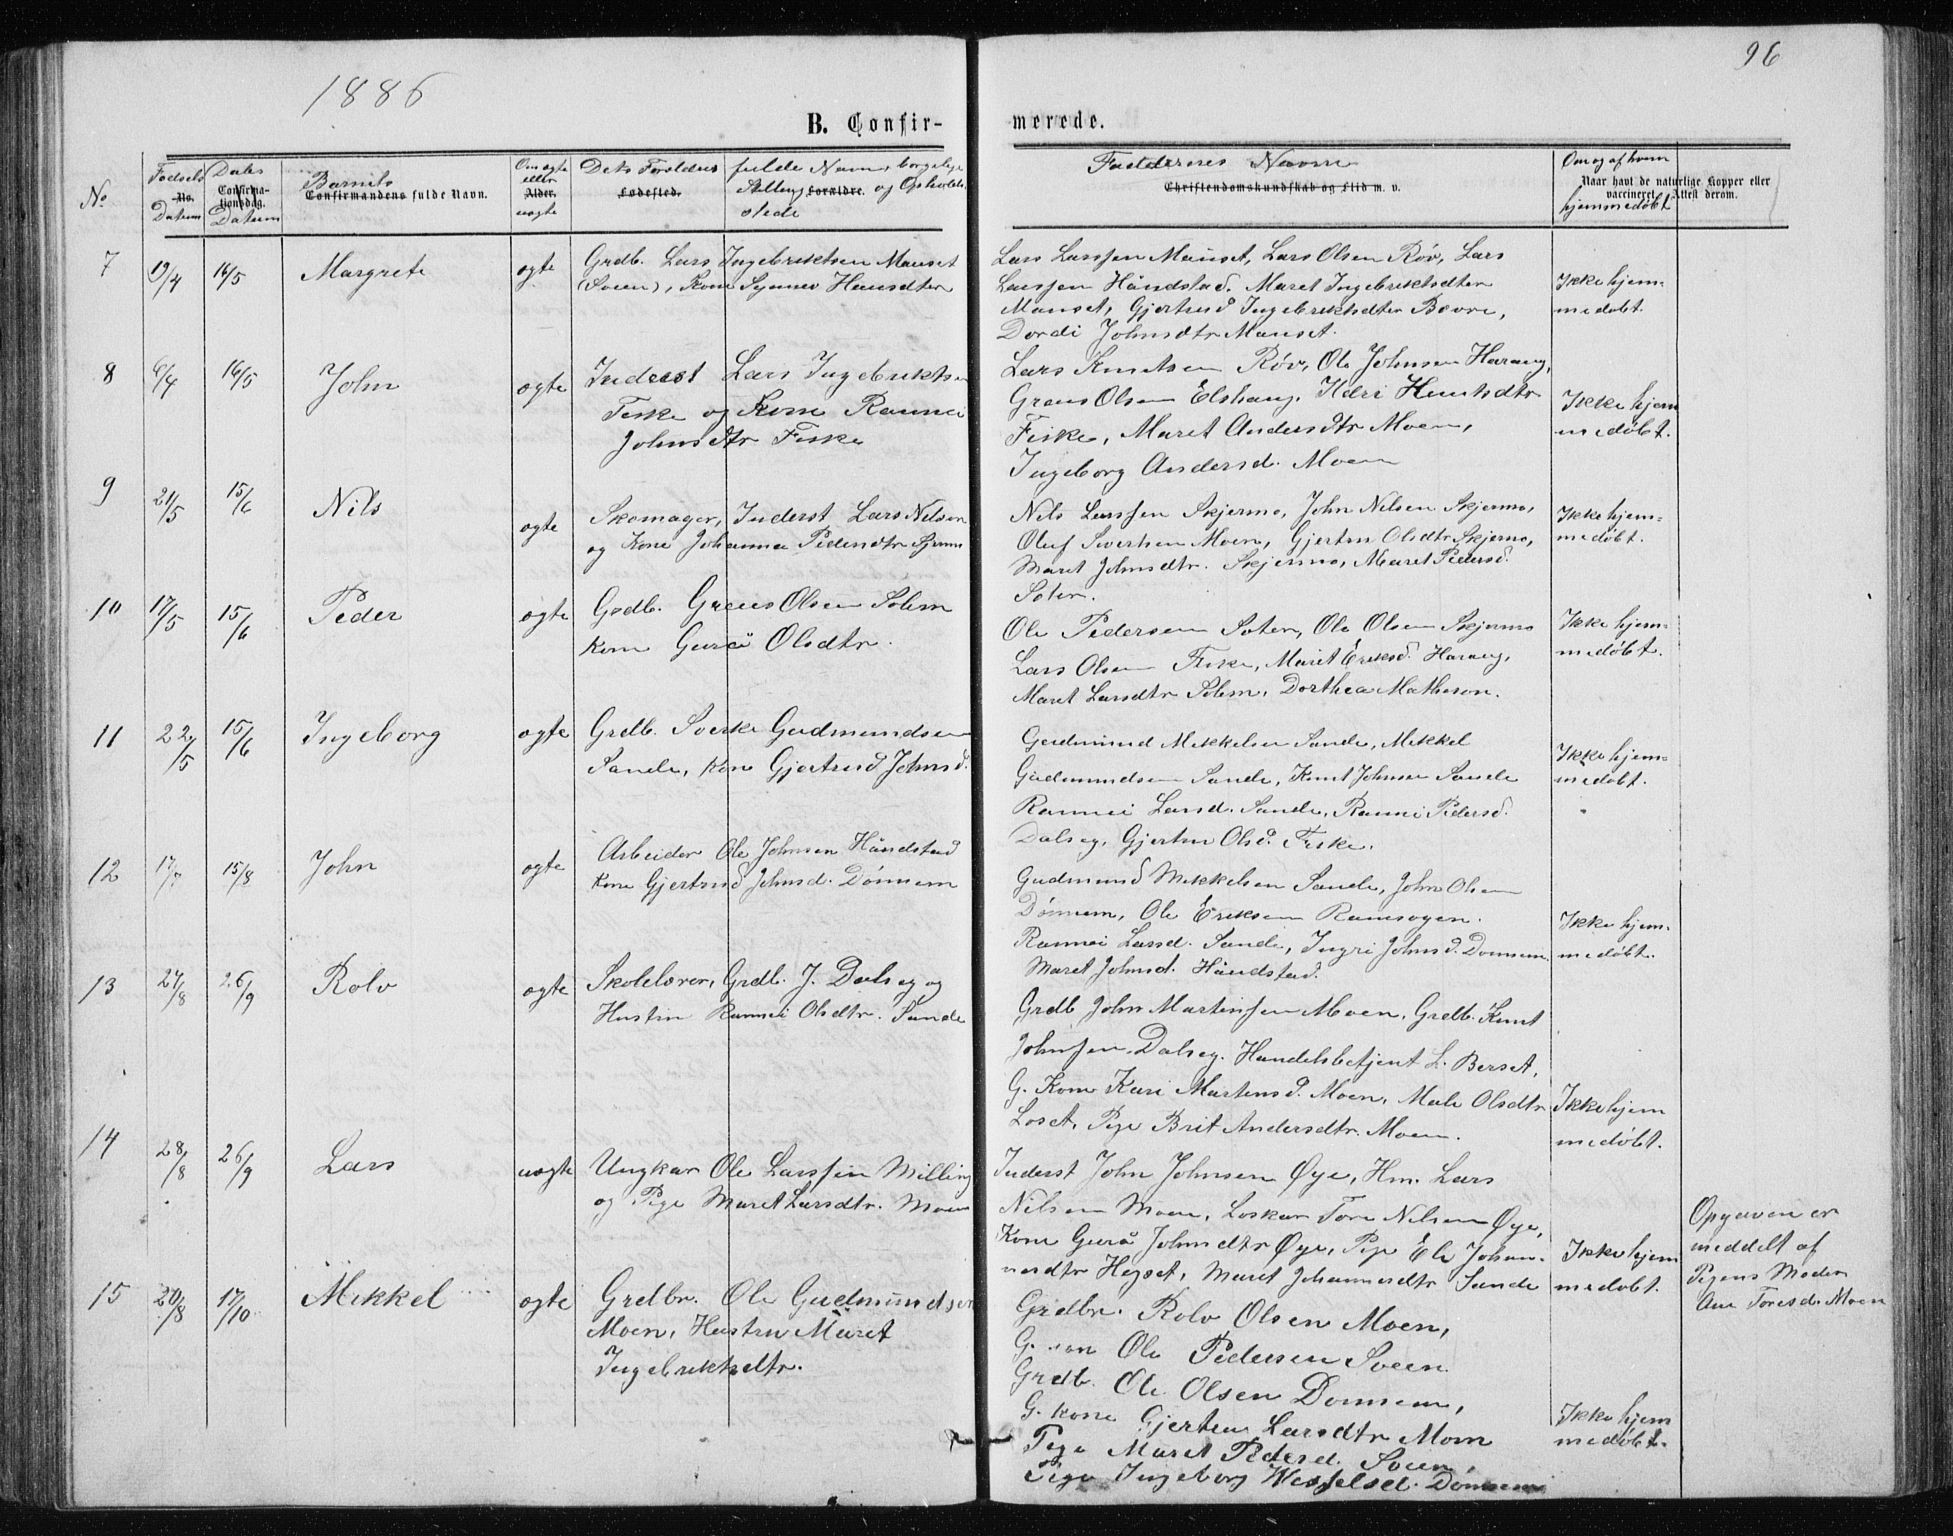 1886
96
B. Confir-
merede.
No
Fødsels No. Datum
Dåbs Confirmationsdag. Datum
Barnets Confirmandens fulde Navn.
Om ægte eller Alder. uægte
Dets Forældres fulde Navn, borgerlige
Fødested. Stilling Forældre. og Opholds-
stede
Faddernes Navne
Christendomskundskab og Flid m. v.
Om og af hvem
Naar havt de naturlige Kopper eller
vaccineret. Attest derom.
hjemmedøbt
7 19/4 16/5 Margrete ægte
Grdb. Lars Ingebriktsen Mauset
(Sveen), Kone Synnev Hansdter
Lars Larssen Mauset, Lars Olsen Røv, Lars
Larssen Håndstad. Maret Ingebriktsdter
Mauset, Gjertrud Ingebriktsdter Bævre,
Dordi Johnsdtr Mauset.
Ikke hjem-
medøbt.
8 6/4 16/5 John ægte
Inderst Lars Ingebriktsen
Fiske og Kone Rannei
Johnsdtr Fiske
Lars Knutsen Røv, Ole Johnsen Harang,
Graus Olsen Elshaug, Ildri Knutsdtr
Fiske, Maret Andersdtr Moen,
Ingeborg Andersd. Moen
Ikke hjem
medøbt.
9 21/5 15/6 Nils ægte
Skomager, Inderst Lars Nilsen
og Kone Johanna Pedersdtr Skjermo
Nils Larssen Skjermo, John Nilsen Skjermo,
Oluf Sivertsen Moen, Gjertru Olsdtr Skjermo,
Maret Johnsdtr. Skjermo, Maret Pedersd.
Soter.
Ikke hjem-
medøbt.
10 17/5 15/6 Peder ægte
Grdb. Graus Olsen Solem
Kone Gurå Olsdtr.
Ole Pedersen Soter, Ole Olsen Skjermo
Lars Olsen Fiske, Maret Eriksd. Harang,
Maret Larsdtr Solem, Dorthea Matheson.
Ikke hjem-
medøbt.
11 22/5 15/6 Ingeborg ægte
Grdb. Sverke Gudmundsen
Sande, Kone Gjertrud Johnsd.
Gudmund Mikkelsen Sande, Mikkel
Gudmundsen Sande, Knut Johnsen Sande
Rannei Larsd. Sande, Rannei Pedersd.
Dalseg, Gjertru Olsd. Fiske.
Ikke hjem-
medøbt.
12 17/7 15/8 John ægte
Arbeider Ole Johnsen Håndstad
Kone Gjertrud Johnsd. Dønnem
Gudmund Mikkelsen Sande, John Olsen
Dønnem, Ole Eriksen Ramsøgen.
Rannei Larsd. Sande, Ingri Johnsd. Dønnem
Maret Johnsd. Håndstad.
Ikke hjem-
medøbt.
13 24/8 26/9 Rolv ægte
Skolelærer, Grdb. J. Dalseg og
Hustru Rannei Olsdtr. Sande
Grdb John Martinssen Moen, Grdb. Knut
Johnsen Dalseg. Handelsbetjent L. Berset,
G. Kone Kari Martensd. Moen, Male Olsdtr
Loset, Pige Brit Andersdtr. Moen.
Ikke hjem
medøbt.
14 28/8 26/9 Lars uægte
Ungkar Ole Larssen Milling
og Pige Maret Larsdtr. Moen
Inderst John Johnsen Øye, Hm. Lars
Nilsen Moen, Løskar Tore Nilsen Øye,
Kone Gurå Johnsdtr Øye, Pige Eli Johan-
nesdtr Hegset, Maret Johannesdtr Sande
Ikke hjem
medøbt.
Opgaven er
meddelt af
Pigens Moder
Ane Toresd. Moen
15 20/8 17/10 Mikkel ægte
Grdbr. Ole Gudmundsen
Moen, Hustru Maret
Ingebriktsdtr.
Grdbr. Rolv Olsen Moen,
G. søn Ole Pedersen Sveen
Grdb. Ole Olsen Dønnem,
G. Kone Gjertru Larsdtr Moen
Pige Maret Pedersd. Sveen,
Pige Ingeborg Wesselsd. Dønnem
Ikke hjem
medøbt.